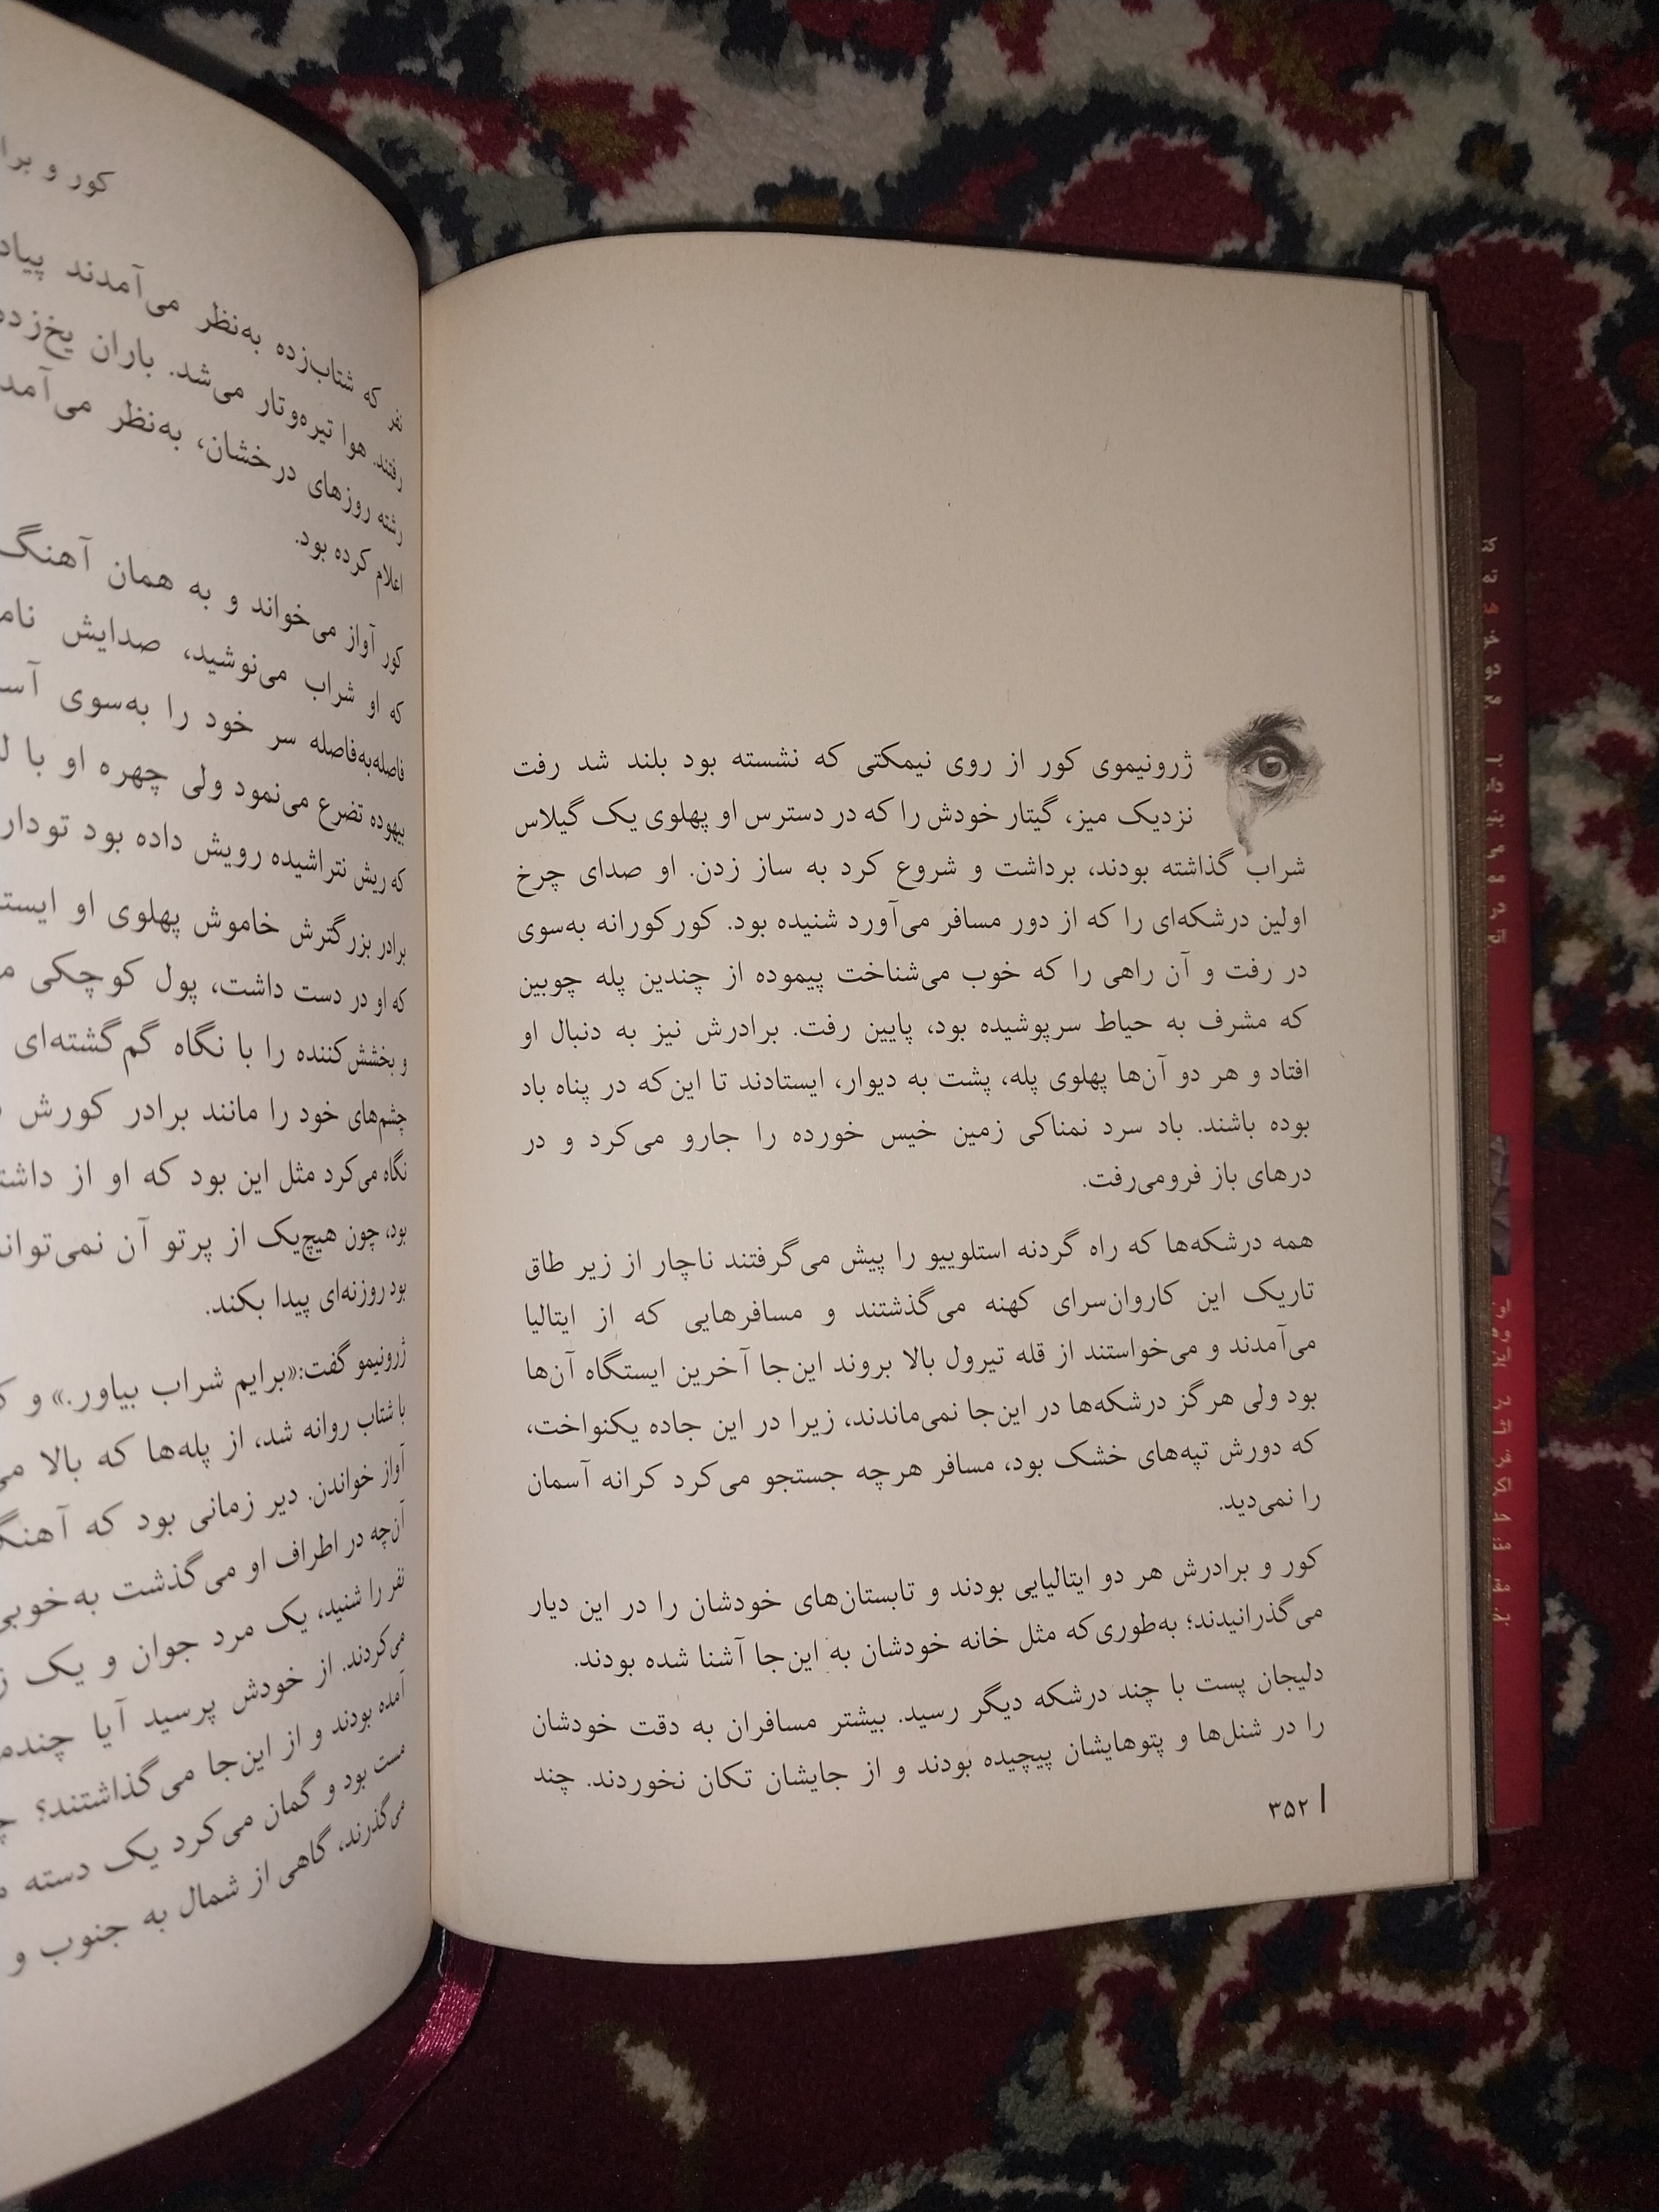 ژرونیموی کور از روی نیمکتی که نشسته بود بلند شد رفت
نزدیک میز، گیتار خودش را که در دسترس او پهلوی یک گیلاس
شراب گذاشته بودند، برداشت و شروع کرد به ساز زدن. او صدای چرخ
اولین درشکه‌ای را که از دور مسافر می‌آورد شنیده بود. کورکورانه به‌سوی
در رفت و آن راهی را که خوب می‌شناخت پیموده از چندین پله چوبین
که مشرف به حیاط سرپوشیده بود، پایین رفت. برادرش نیز به دنبال او
افتاد و هر دو آن‌ها پهلوی پله، پشت به دیوار، ایستادند تا این‌که در پناه باد
بوده باشند. باد سرد نمناکی زمین خیس خورده را جارو می‌کرد و در
درهای باز فرومی‌رفت.
همه درشکه‌ها که راه گردنه استلوییو را پیش می‌گرفتند ناچار از زیر طاق
تاریک این کاروان‌سرای کهنه می‌گذشتند و مسافرهایی که از ایتالیا
می‌آمدند و می‌خواستند از قله تیرول بالا بروند این‌جا آخرین ایستگاه آن‌ها
بود ولی هرگز درشکه‌ها در این‌جا نمی‌ماندند، زیرا در این جاده یکنواخت،
که دورش تپه‌های خشک بود، مسافر هرچه جستجو می‌کرد کرانه آسمان
را نمی‌دید.
کور و برادرش هر دو ایتالیایی بودند و تابستان‌های خودشان را در این دیار
می‌گذرانیدند؛ به‌طوری‌که مثل خانه خودشان به این‌جا آشنا شده بودند.
دلیجان پست با چند درشکه دیگر رسید. بیشتر مسافران به دقت خودشان
را در شنل‌ها و پتوهایشان پیچیده بودند و از جایشان تکان نخوردند. چند
۳۵۲
کور و
نفر که شتاب‌زده به‌نظر می‌آمدند
رفتند. هوا تیره‌وتار می‌شد. باران یخ‌زده
رشته روزهای درخشان، به‌نظر می‌آمد
اعلام کرده بود.
کور آواز می‌خواند و به همان آهنگ
که او شراب می‌نوشید، صدایش
فاصله‌به‌فاصله سر خود را به‌سوی
بیهوده تضرع می‌نمود ولی چهره او با
که ریش نتراشیده رویش داده بود
برادر بزرگترش خاموش پهلوی او
که او در دست داشت، پول کوچکی
و بخشش‌کننده را با نگاه گم‌گشته‌ای
چشم‌های خود را مانند برادر کورش
نگاه می‌کرد مثل این بود که او از
بود، چون هیچ‌یک از پرتو آن
بود روزنه‌ای پیدا بکند.
ژرونیمو گفت:«برایم شراب بیاور.» و
با شتاب روانه شد، از پله‌ها که بالا
آواز خواندن. دیر زمانی بود که
آن‌چه در اطراف او می‌گذشت
نفر را شنید، یک مرد جوان و یک
می‌کردند. از خودش پرسید آیا
آمده بودند و از این‌جا می‌گذاشتند؟
مست بود و گمان می‌کرد یک دسته
می‌گذرند، گاهی از شمال به جنوب و